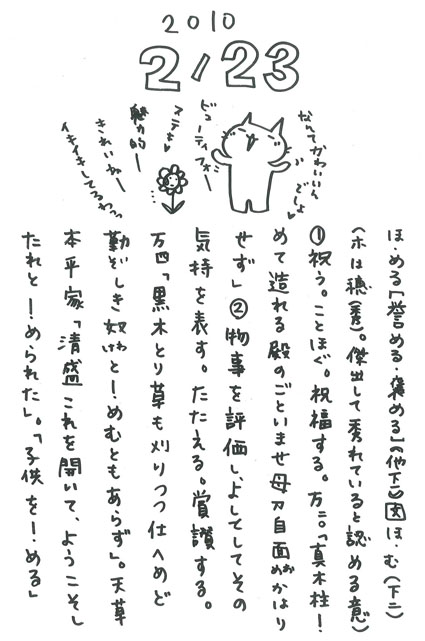 2010
2/23
なんてかわいいんでしょ
ビューティフォー
ステキ♥
魅力的ー
きれいねー
イキイキしてるわっ
ほ・める【誉める・褒める】《他下一》図ほ・む(下二)
(ホは穂(秀)。傑出して秀れていると認める意)
①祝う。ことほぐ。祝福する。万二〇「真木柱ー
めて造れる殿のごといませ母刀自面がはり
せず」②物事を評価し、よしとしてその
気持を表す。たたえる。賞讃する。
万四「黒木とり草も刈りつつ仕へめど
勤ぞしき奴とー・めむともあらず」。天草
本平家「清盛これを聞いて、ようこそし
たれとー・められた」。「子供をー・める」